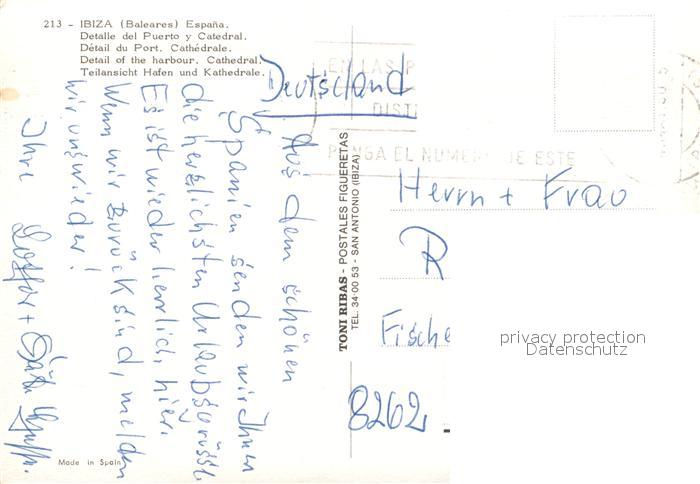 213 - IBIZA (Baleares) España.
Detalle del Puerto y Catedral.
Détail du Port. Cathédrale.
Detail of the harbour. Cathedral.
Teilansicht Hafen und Kathedrale.
Deutschland
Aus dem schönen
Spanien senden wir Ihnen
die herzlichsten Urlaubsgrüsse
Es ist wieder herrlich hier.
Wenn wir zurück sind, melden
wir uns wieder!
Ihre
Lothar +
TONI RIBAS - POSTALES FIGUERETAS
TEL. 34 00 53 - SAN ANTONIO (IBIZA)
EN LAS P
DISTI
PONGA EL NUMERO DE ESTE
Herrn + Frau
R
Fische
8262
privacy protection
Datenschutz
Made in Spain